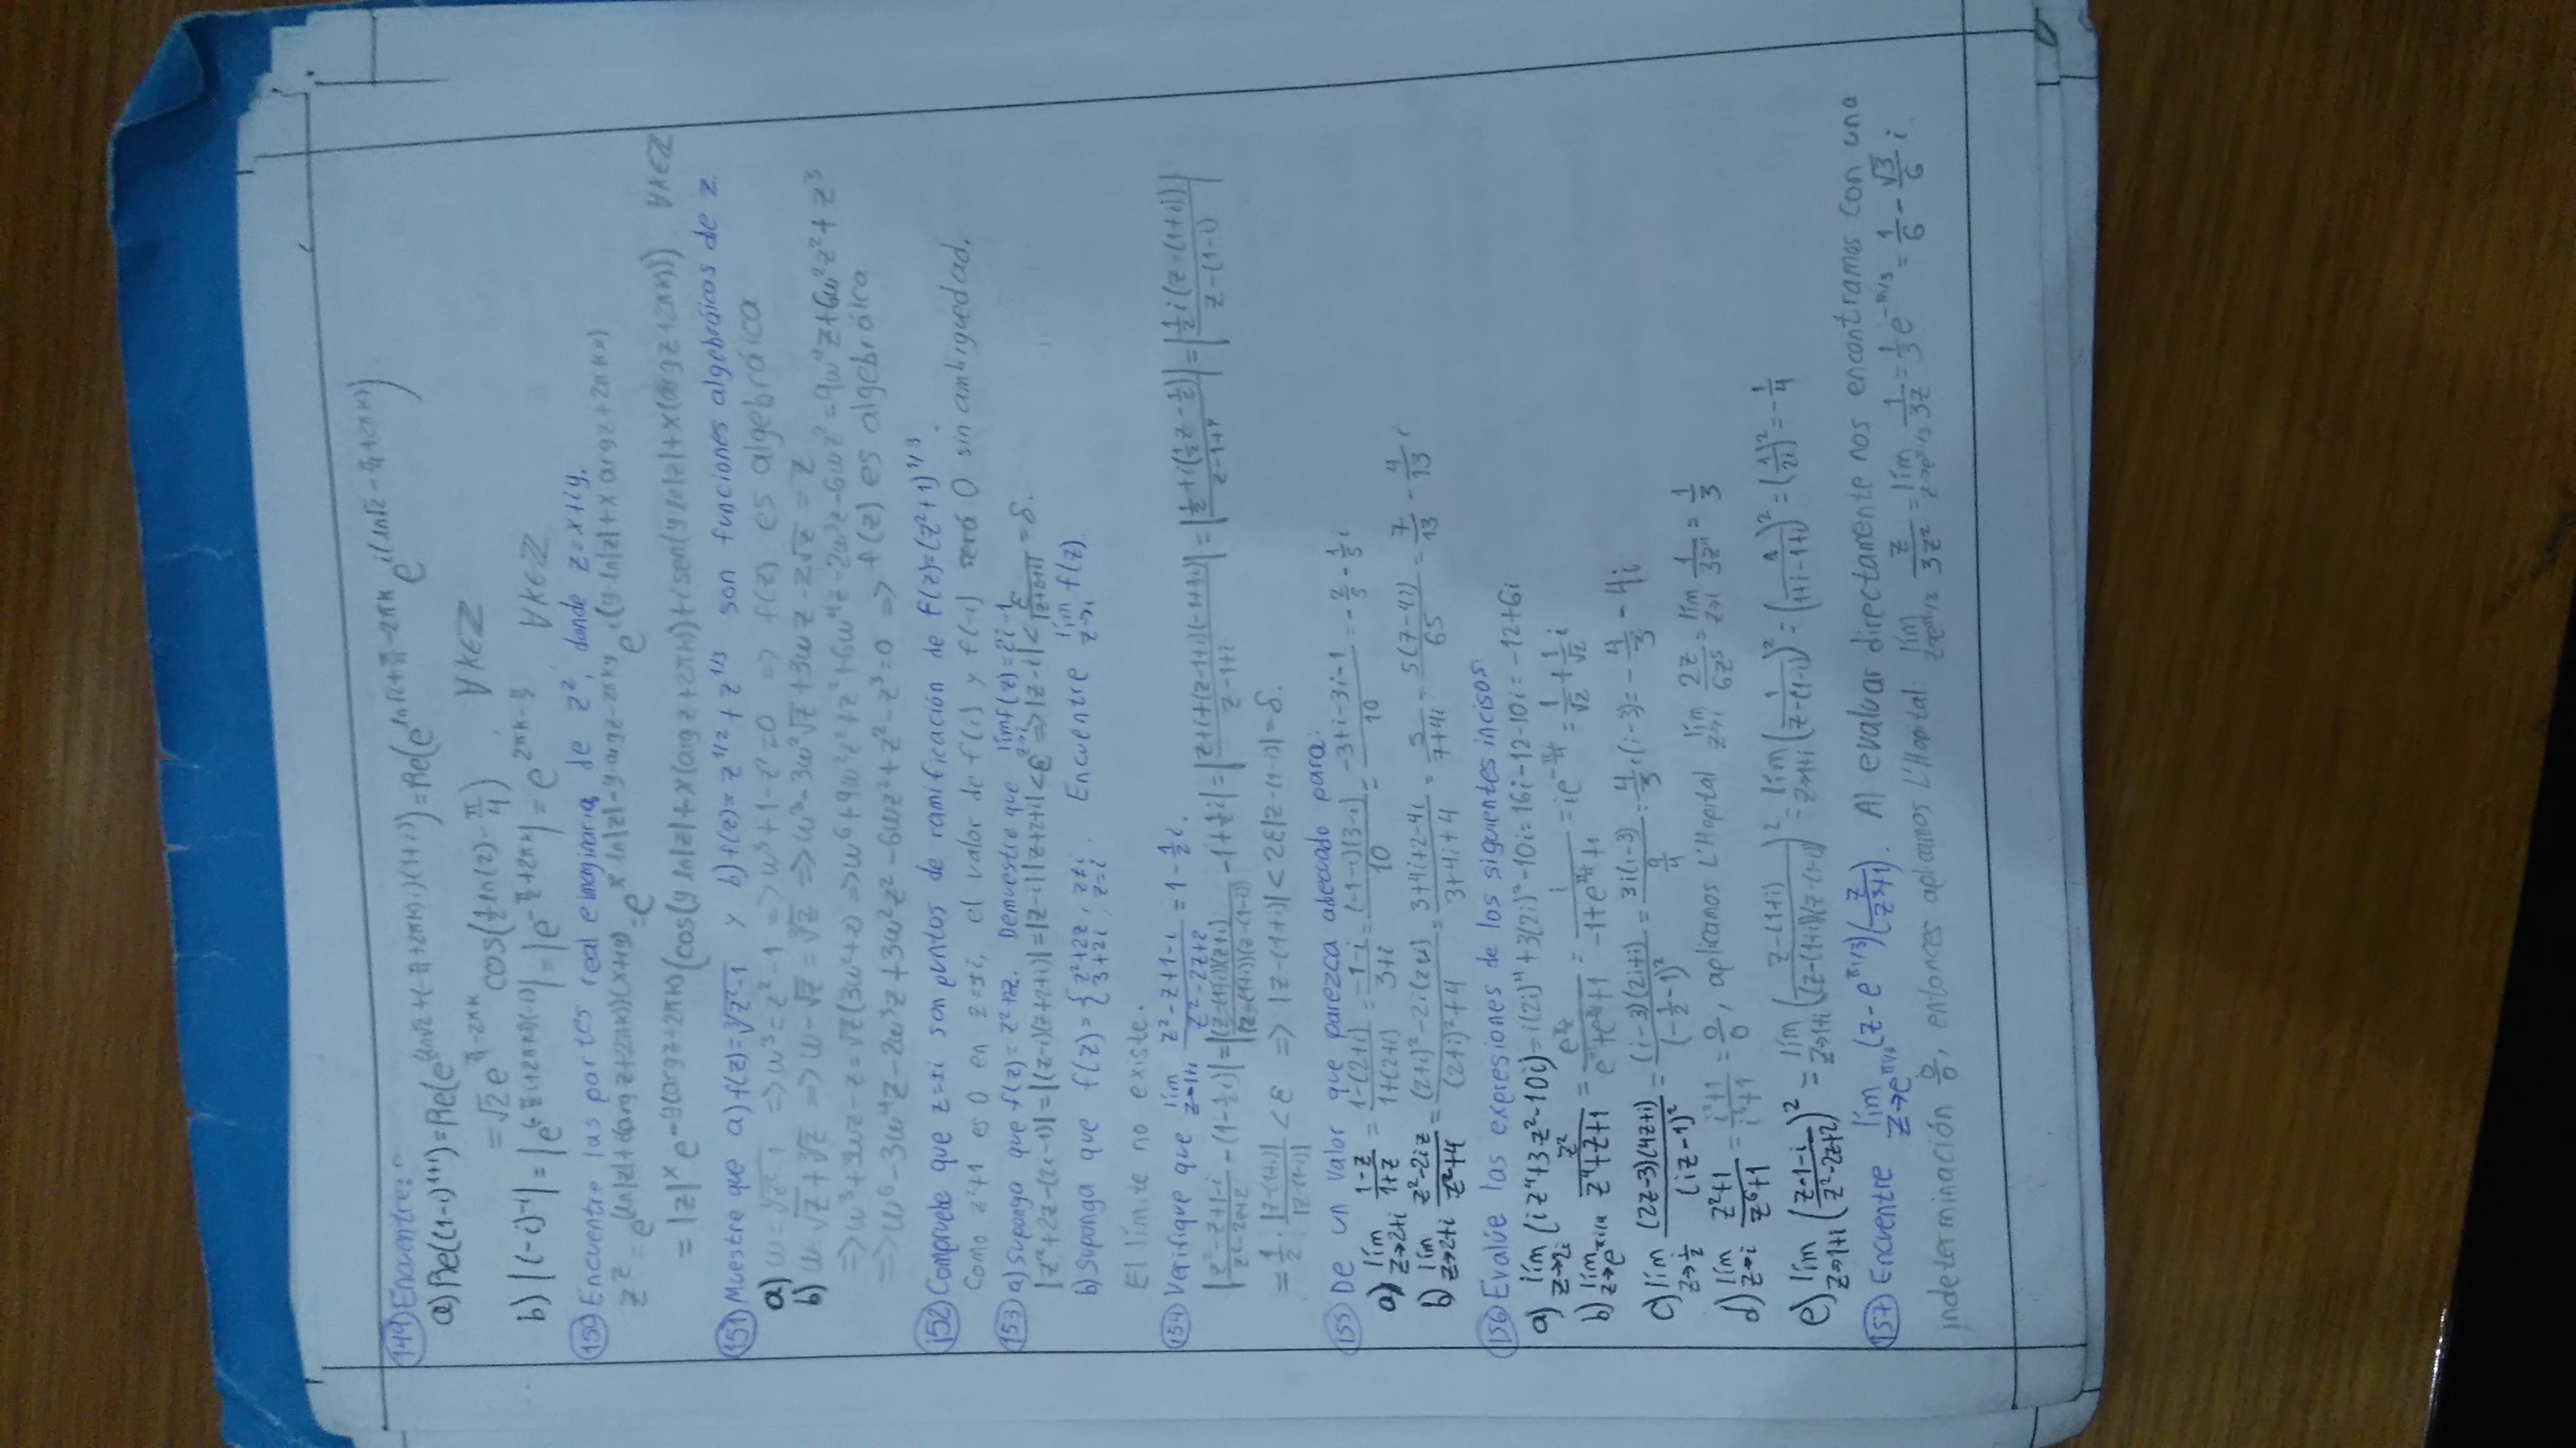 149) Encuentre:
a) Re((1-i)^{1+i}) = Re(e^{(ln√2+(-π/4+2πk)i)(1+i)}) = Re(e^{ln√2+π/4-2πk} e^{i(ln√2-π/4+2πk)})
= √2 e^{π/4-2πk} cos(½ln(2)-π/4), ∀k∈ℤ
b) |(-i)^{-i}| = |e^{(-π/2 i+2πki)(-i)}| = |e^{-π/2+2πk}| = e^{2πk-π/2}, ∀k∈ℤ
150) Encuentre las partes real e imaginaria de z^z, donde z=x+iy.
z^z = e^{(ln|z|+i(arg z+2πk))(x+iy)} = e^{x ln|z|-y arg z-2πky} e^{i(y ln|z|+x arg z+2πkx)}
= |z|^x e^{-y(arg z+2πk)} (cos(y ln|z|+x(arg z+2πk))+i sen(y ln|z|+x(arg z+2πk))), ∀k∈ℤ
151) Muestre que a) f(z)=∛(z²-1) y b) f(z)= z^{1/2}+z^{1/3} son funciones algebráicas de z.
a) w=∛(z²-1) => w³=z²-1 => w³+1-z²=0 => f(z) es algebráica
b) w=√z+∛z => w-√z=∛z => w³-3w²√z+3wz-z√z = z
=> w³+3wz-z=√z(3w²+z) => w⁶+9w²z²+z²+6w⁴z-2w³z-6wz²=9w⁴z+6w²z²+z³
=> w⁶-3w⁴z-2w³z+3w²z²-6wz²+z²-z³=0 => f(z) es algebráica
152) Compruebe que z=±i son puntos de ramificación de f(z)=(z²+1)^{1/3}.
Como z²+1 es 0 en z=±i, el valor de f(i) y f(-i) será 0 sin ambiguedad.
153) a) Suponga que f(z)=z²+2z. Demuestre que lím_{z→i} f(z)=2i-1
|z²+2z-(2i-1)|=|(z-i)(z+2+i)|=|z-i||z+2+i|<ε => |z-i|<ε/|z+2+i| = δ.
b) Suponga que f(z)={z²+2z, z≠i; 3+2i, z=i. Encuentre lím_{z→i} f(z)
El límite no existe.
154) Verifique que lím_{z→1+i} (z²-z+1-i)/(z²-2z+2) = 1-½i.
|(z²-z+1-i)/(z²-2z+2) - (1-½i)| = |((z-(1+i))(z+i))/((z-(1+i))(z-(1-i))) - 1+½i| = |(z+i+(z-1+i)(-1+½i))/(z-1+i)| = |(½+i(½z-½))/(z-1+i)| = |(½i(z-(1+i)))/(z-(1-i))|
= ½ · |z-(1+i)|/|z-(1-i)| < ε => |z-(1+i)|<2ε|z-(1-i)|=δ.
155) De un valor que parezca adecuado para:
a) lím_{z→2+i} (1-z)/(1+z) = (1-(2+i))/(1+(2+i)) = (-1-i)/(3+i) = ((-1-i)(3-i))/10 = (-3+i-3i-1)/10 = -2/5 - 1/5 i
b) lím_{z→2+i} (z²-2iz)/(z²+4) = ((2+i)²-2i(2+i))/((2+i)²+4) = (3+4i+2-4i)/(3+4i+4) = 5/(7+4i) = 5(7-4i)/65 = 7/13 - 4/13 i
156) Evalúe las expresiones de los siguientes incisos
a) lím_{z→2i} (iz⁴+3z²-10i)=i(2i)⁴+3(2i)²-10i=16i-12-10i=-12+6i
b) lím_{z→e^{πi/4}} z²/(z⁴+z+1) = e^{πi/2}/(e^{πi}+e^{πi/4}+1) = i/(-1+e^{πi/4}+1) = ie^{-πi/4} = 1/√2 + 1/√2 i
c) lím_{z→i/2} ((2z-3)(4z+i))/(iz-1)² = ((i-3)(2i+i))/(-½-1)² = 3i(i-3)/(9/4) = 4/3 i(i-3) = -4/3 - 4i
d) lím_{z→i} (z²+1)/(z⁶+1) = (i²+1)/(i⁶+1) = 0/0, aplicamos L'Hopital lím_{z→i} 2z/6z⁵ = lím_{z→i} 1/3z⁴ = 1/3
e) lím_{z→1+i} ((z-1-i)/(z²-2z+2))² = lím_{z→1+i} ((z-(1+i))/((z-(1+i))(z-(1-i))))² = lím_{z→1+i} (1/(z-(1-i)))² = (1/(1+i-1+i))² = (1/2i)² = -1/4
157) Encuentre lím_{z→e^{πi/3}} (z-e^{πi/3})(z/(z³+1)). Al evaluar directamente nos encontramos con una
indeterminación 0/0, entonces aplicamos L'Hopital: lím_{z→e^{πi/3}} z/3z² = lím_{z→e^{πi/3}} 1/3z = 1/3 e^{-πi/3} = 1/6 - √3/6 i.